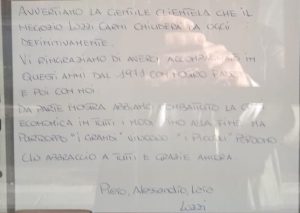 AVVERTIAMO LA GENTILE CLIENTELA CHE IL
NEGOZIO LUZZI CARNI CHIUDERÀ DA OGGI
DEFINITIVAMENTE.
VI RINGRAZIAMO DI AVERCI ACCOMPAGNATO IN
QUESTI ANNI DAL 1973 CON
E POI CON NOI
DA PARTE NOSTRA ABBIAMO COMBATTUTO LA CRISI
ECONOMICA IN TUTTI I MODI FINO ALLA FINE MA
PURTROPPO "I GRANDI" VINCONO "I PICCOLI" PERDONO.
UN ABBRACCIO A TUTTI E GRAZIE ANCORA.
PIERO, ALESSANDRO,
LUZZI